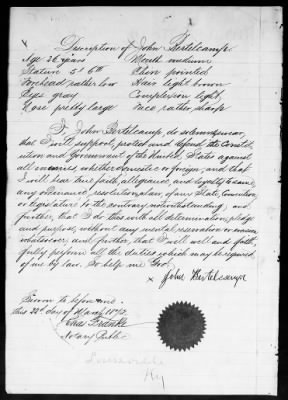 Description of John Bertelcamp.
Age 36 years Mouth medium
Stature 5' 6th Chin pointed
Forehead rather low Hair light brown
Eyes gray Complexion light
Nose pretty large Face rather sharp
I, John Bertelcamp, do solemnly swear,
that I will support, protect and defend the Constit-
ution and Government of the United States against
all enemies, whether domestic or foreign, and that
I will bear true faith, allegiance, and loyalty to same,
any ordinance, resolution or law, of any State, Convention
or legislature to the contrary notwithstanding, and
further, that I do this with all determination, pledge
and purpose, without any mental reservation or evasion
whatsoever, and further, that I will well and faith-
fully perform all the duties which may be required
of me by law. So help me God.
x John Bertelcamp
Sworn to before me
this 22d day of March 1872.
Chas
Notary Public
Louisville
Ky